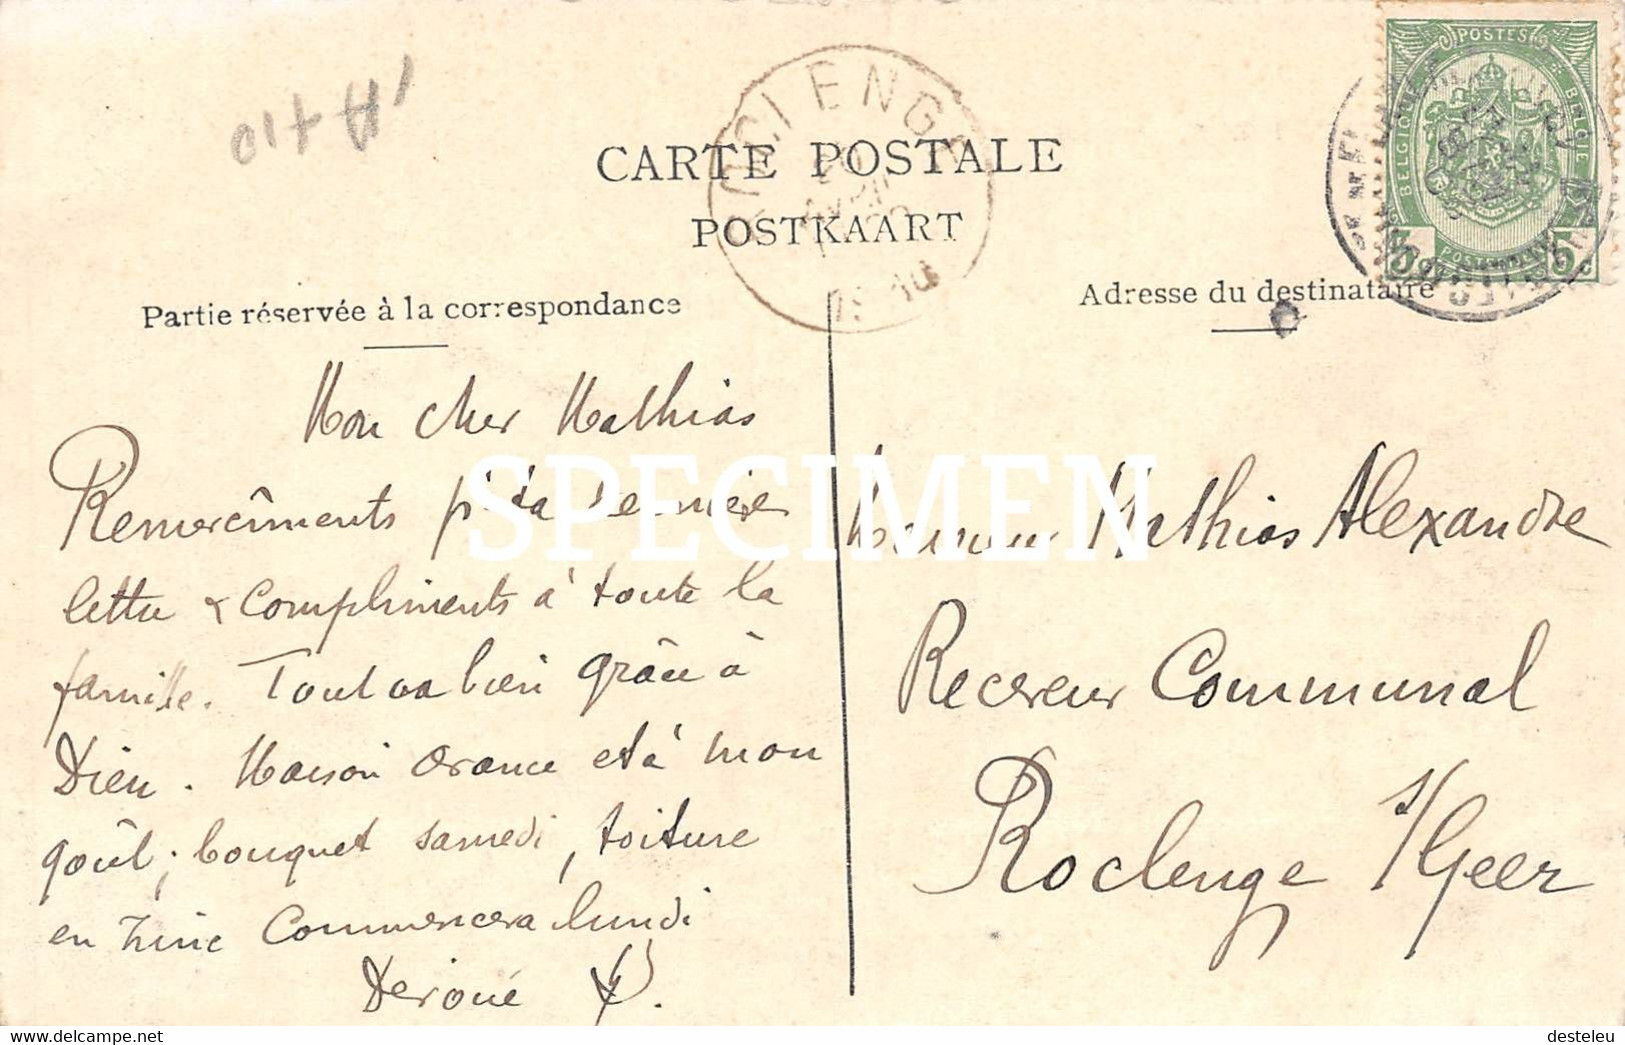 CARTE POSTALE
POSTKAART
Partie réservée à la correspondance
Adresse du destinataire
POSTES
BELGIQUE
BELGIE
Mon cher Mathias
Remercîments pr ta dernière
lettre & compliments à toute la
famille. Tout va bien grâce à
Dieu. Maison avance et à mon
goût; bouquet samedi, toiture
en zinc commencera lundi
Dévoué
Monsieur Mathias Alexandre
Receveur Communal
Roclenge s/Geer
SPECIMEN
www.delcampe.net
desteleu